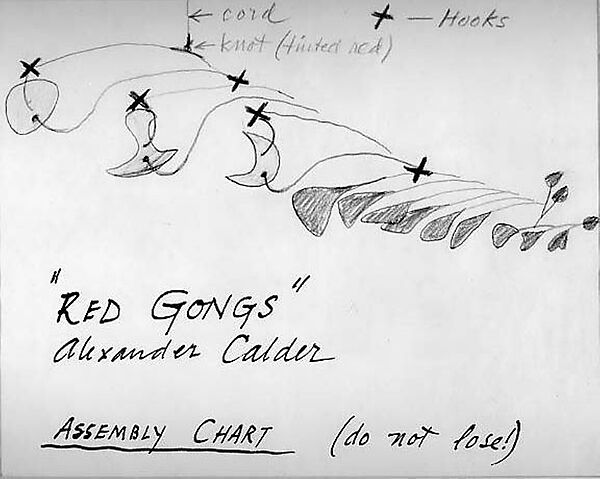 ← cord
← knot (tinted red)
× — Hooks
"Red Gongs"
Alexander Calder
Assembly Chart (do not lose!)